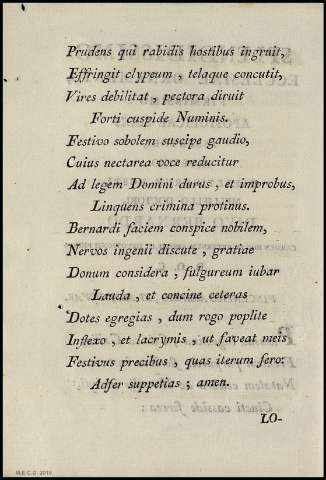 Prudens qui rabidis hostibus ingruit,
Effringit clypeum , telaque concutit,
Vires debilitat , pectora diruit
Forti cuspide Numinis.
Festivo sobolem suscipe gaudio,
Cuius nectarea voce reducitur
Ad legem Domini durus , et improbus,
Linquens crimina protinus.
Bernardi faciem conspice nobilem,
Nervos ingenii discute , gratiae
Donum considera , fulgureum iubar
Lauda , et concine ceteras
Dotes egregias , dum rogo poplite
Inflexo , et lacrymis , ut faveat meis
Festivus precibus , quas iterum fero:
Adfer suppetias ; amen.
LO-
M.E.C.D. 2016